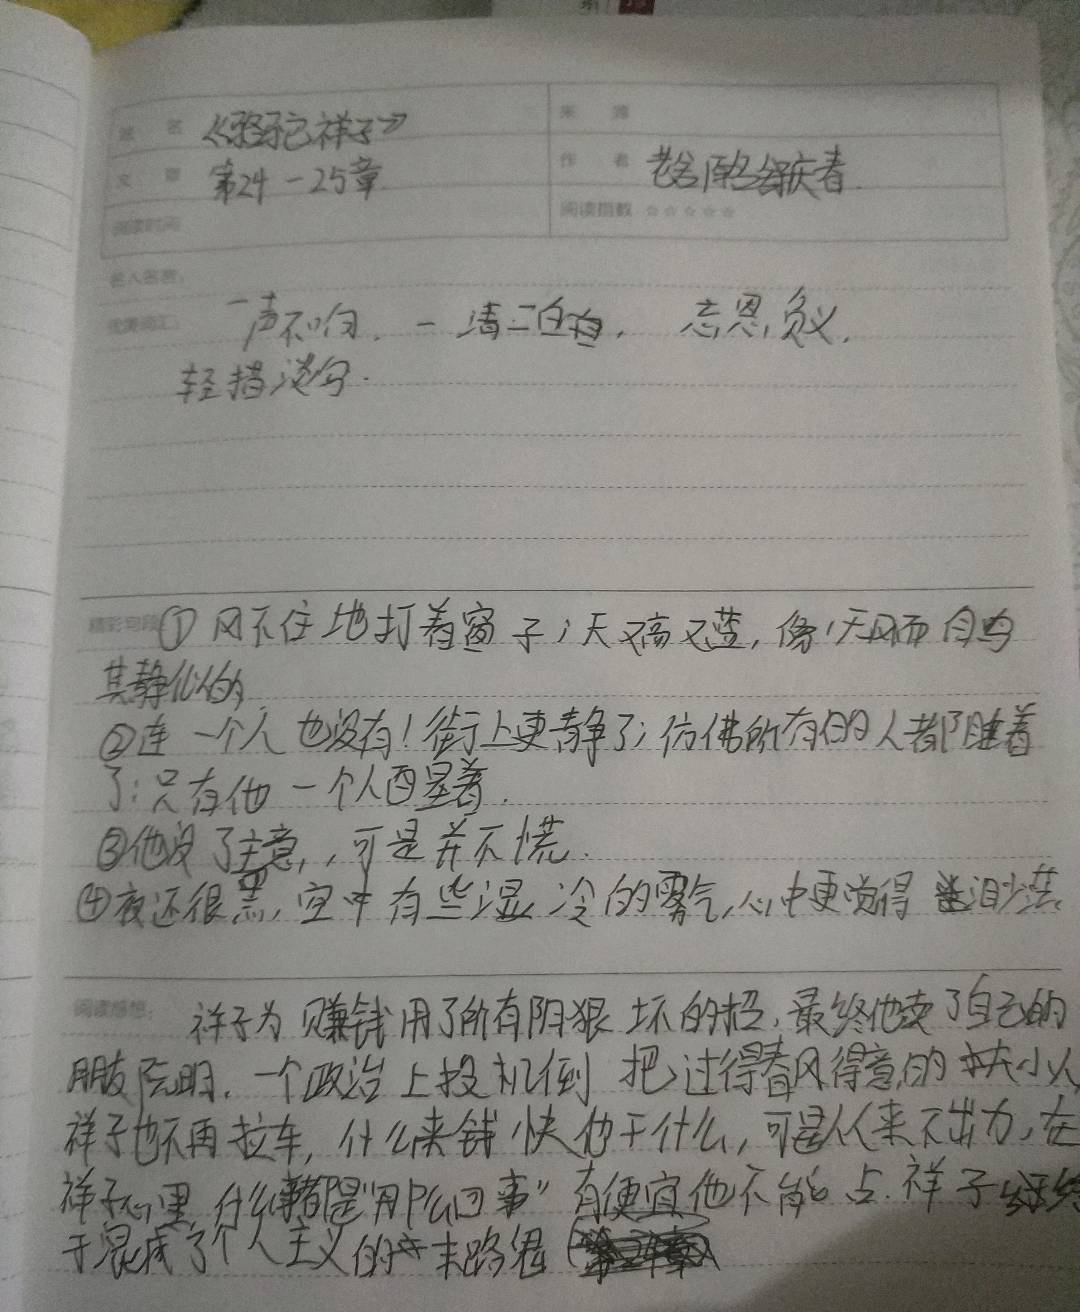 《骆驼祥子》
第24-25章
作者 老舍 陈绍庆著
阅读时间
阅读指数 ☆☆☆☆☆
名人名言：
优美词汇： 一声不响，一清二白，忘恩负义，
轻描淡写.
精彩句段 ①风不住地打着窗子；天又高又蓝，像
其静似的
②连一个人也没有！街上更静了；仿佛所有的人都睡着
了；只有他一个人醒着.
③他没了主意，，可是并不慌.
④夜还很黑，空中有些湿冷的雾气，心中更觉得渺茫.
阅读感想： 祥子为赚钱用了所有阴狠坏的招，最终他卖了自己的
朋友阮明，一个政治上投机倒把过得春风得意的小人
祥子也不再拉车，什么来钱快他干什么，可是从来不出力，在
祥子心里，什么事都是“那么回事”有便宜他不能占.祥子终
于混成了个人主义的末路鬼